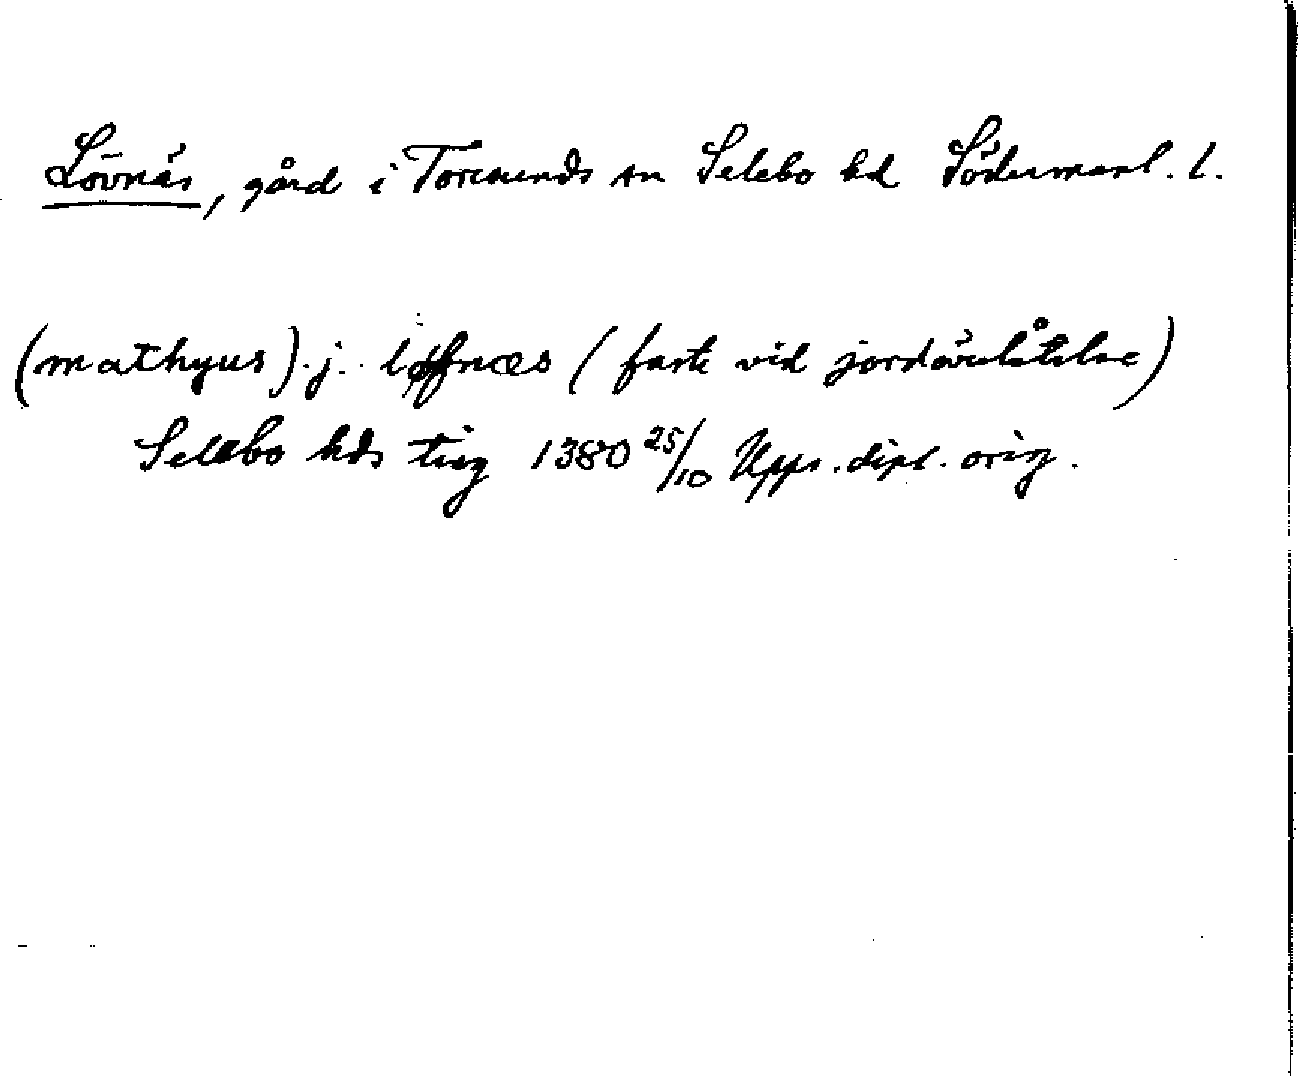 Lövnäs, gård i Toresunds sn Selebo hd Södermanl. l.
(mathyus) . j . løffnæs ( fasti vid jordöverlåtelse)
Selebo hds ting 1380 25/10 Upps. dipl. orig.